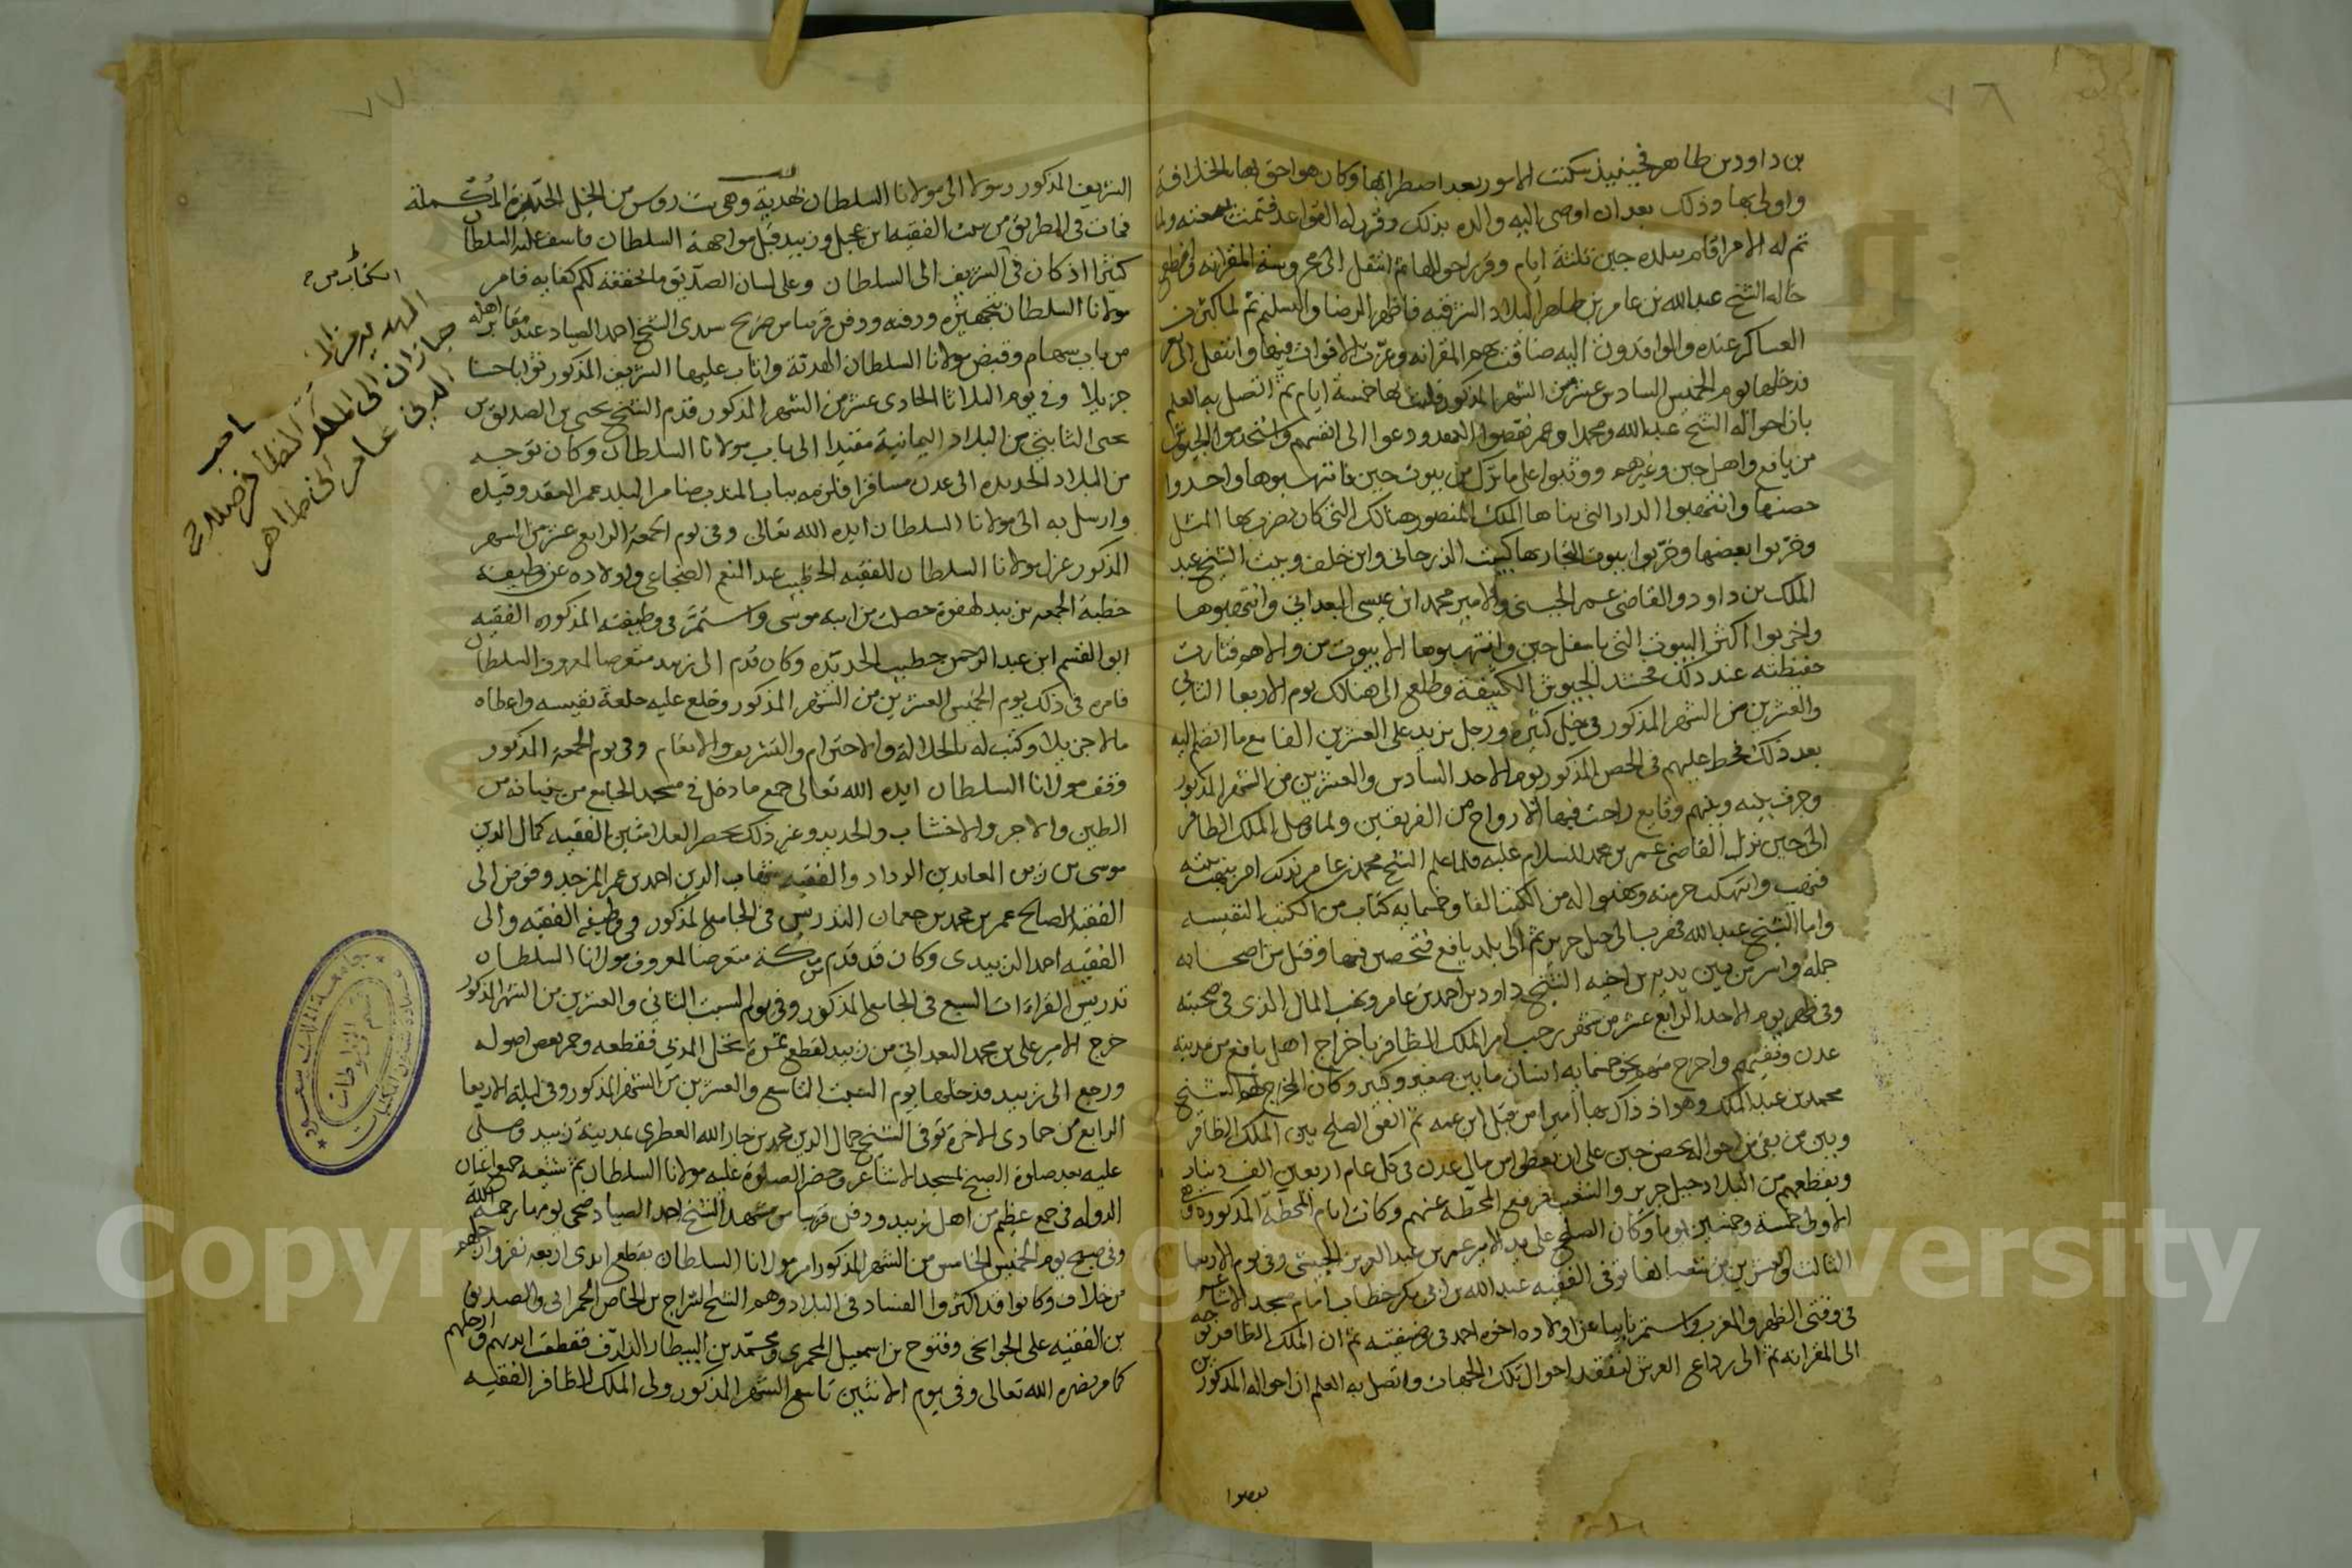 ٧٦
بن داود بن طاهر فحينيذ سكنت الامور بعد اضطرابها وكان هو احق بها بالخلافة
واولى بها وذلك بعد ان اوصى اليه والده بذلك وقرر له القواعد فتمت بيعته ولما
تم له الامر اقام ببلده جبن ثلثة ايام وقرر احوالها ثم انتقل الى محروسة المقرانه
خاله الشيخ عبدالله بن عامر بن طاهر البلاد الشرقيه فاظهر الرضا والتسليم ثم لما كثرت
العساكر عنده والوافدون اليه ضاقت بهم المقرانه وعزت الاقوات فيها وانتقل الى
فدخلها يوم الخميس السادس عشر من الشهر المذكور فلبث بها خمسة ايام ثم اتصل به العلم
بان اخواله الشيخ عبدالله ومحمدا وعمر نقضوا العهد ودعوا الى انفسهم واستخدموا الجيوش
من يافع واهل جبن وغيرهم ووثبوا على ما نزل من بيوت جبن فانتهبوها واخذوا
حصنها وانتهبوا الدار التي بناها الملك المنصور هنالك التي كان يضرب بها المثل
وخربوا بعضها وخربوا بيوت التجار بها كبيت الذرحاني وابن خلف وبيت الشيخ عبد
الملك بن داود والقاضي عمر الجبني والامير محمد ابن عيسى البعداني وانتهبوها
واخربوا اكثر البيوت التي باسفل جبن وانتهبوها الا بيوت من والاهم فثارت
حفيظته عند ذلك فحشد الجيوش الكثيفة وطلع الى هنالك يوم الاربعا الثاني
والعشرين من الشهر المذكور في خيل كثيره ورجل يزيد على العشرين الفا مع ما انضم اليه
بعد ذلك فحط عليهم في الحصن المذكور يوم الاحد السادس والعشرين من الشهر المذكور
وجرت بينه وبينهم وقايع راحت فيها الارواح من الفريقين ولما وصل الملك الظافر
الى جبن نزل القاضي عمر بن محمد للسلام عليه فلما علم الشيخ محمد بن عامر بذلك امر بنهب بيته
فنهب وانتهكت حرمته ونقلوا له من الكتب الفا وخمسمايه كتاب من الكتب النفيسه
واما الشيخ عبدالله فهرب الى جبل حرير ثم الى بلد يافع فتحصن فيها وقتل من اصحابه
جمله واسر من بين يديه بن اخيه الشيخ داود بن احمد بن عامر ونهب المال الذي في صحبته
وفي ظهر يوم الاحد الرابع عشر من شهر رجب امر الملك الظافر باخراج اهل يافع من مدينة
عدن ونفيهم واخرج منهم نحو خمسمايه انسان ما بين صغير وكبير وكان المخرج لهم الشيخ
محمد بن عبد الملك وهو اذ ذاك بها اميرا من قبل ابن عمه ثم اتفق الصلح بين الملك الظافر
وبين من بقي من اخواله بحصن جبن على ان يعطوا من مال عدن في كل عام اربعين الف دينار
ويقطعهم من البلاد جبل حرير والشعيب فرفع المحطه عنهم وكانت ايام المحطة المذكورة وهي
الاولى خمسة وخمسين يوما وكان الصلح على يد الامير عمر بن عبد العزيز الحبيشي وفي يوم الاربعا
الثالث والعشرين من شعبانها توفى الفقيه عبدالله بن ابي بكر خطاب امام مسجد الاشاعر
في وقتي الظهر والمغرب واستمر نايبا عن اولاده اخوه احمد في وضيفته ثم ان الملك الظافر توجه
الى المقرانه ثم الى رداع العرش لتفقد احوال تلك الجهات واتصل به العلم ان اخواله المذكورين
نقضوا
٧٧
الشريف المذكور رسولا الى مولانا السلطان بهدية وهي ست روس من الخيل الجيدة المكملة
فمات في الطريق من بيت الفقيه ابن عجيل وزبيد قبل مواجهة السلطان فاسف عليه السلطان
كثيرا اذ كان في الشريف الى السلطان وعلى لسان الصديق ما لحققه لكم كفايه فامر
مولانا السلطان بتجهيزه ودفنه ودفن قريبا من ضريح سيدي الشيخ احمد الصياد عند مقابر اهله
من باب سهام وقبض مولانا السلطان الهدية واثاب عليها الشريف المذكور ثوابا حسنا
جزيلا وفي يوم الثلاثا الحادي عشر من الشهر المذكور قدم الشيخ يحيى بن الصديق بن
يحيى الثابتي من البلاد اليمانية مقيدا الى باب مولانا السلطان وكان توجه
من البلاد الحديده الى عدن مسافرا فلزمه بباب المندب ضامر البلد عمر العقد وقيده
وارسل به الى مولانا السلطان ايده الله تعالى وفي يوم الجمعة الرابع عشر من الشهر
المذكور عزل مولانا السلطان الفقيه الخطيب عبد النعم الضجاعي واولاده عن وظيفة
خطبة الجمعه بزبيد لهفوة حصلت من ابنه موسى واستمر في وظيفته المذكوره الفقيه
ابو القسم ابن عبد الرحمن خطيب الحديده وكان قدم الى زبيد متعرضا لمعروف السلطان
فامره في ذلك يوم الخميس العشرين من الشهر المذكور وخلع عليه خلعة نفيسه واعطاه
مالا جزيلا وكتب له بالجلالة والاحترام والتشريف والانعام وفي يوم الجمعة المذكور
وقف مولانا السلطان ايده الله تعالى جميع ما دخل في مسجد الجامع من بنيانه من
الطين والاجر والاخشاب والحديد وغير ذلك بحضر العلامتين الفقيه كمال الدين
موسى بن زين العابدين الرداد والفقيه شهاب الدين احمد بن عمر المزجد وفوض الى
الفقيه الصالح عمر بن محمد بن جعمان التدريس في الجامع المذكور في وظيفة الفقه والى
الفقيه احمد الزبيدي وكان قد قدم من مكة متعرضا لمعروف مولانا السلطان
تدريس القراءات السبع في الجامع المذكور وفي يوم السبت الثاني والعشرين من الشهر المذكور
خرج الامير علي بن محمد البعداني من زبيد لقطع ثمرة نخل المدني فقطعه وجمر بعض اصوله
ورجع الى زبيد فدخلها يوم السبت التاسع والعشرين من الشهر المذكور وفي ليلة الاربعا
الرابع من جمادى الاخرة توفى الشيخ جمال الدين محمد بن جار الله العطري بمدينة زبيد وصلى
عليه بعد صلوة الصبح بمسجد الاشاعر وحضر الصلوة عليه مولانا السلطان ثم شيعه جميع اعيان
الدوله في جمع عظيم من اهل زبيد ودفن قريبا من مشهد الشيخ احمد الصياد ضحى يومها رحمه الله
وفي صبح يوم الخميس الخامس من الشهر المذكور امر مولانا السلطان بقطع ايدي اربعه نفر وارجلهم
من خلاف وكانوا قد اكثروا الفساد في البلاد وهم الشيخ السراج بن الخاص الحمراني والصديق
بن الفقيه علي الجوانحي وفتوح بن اسمعيل المحمري ومحمد بن البيطار الدلف فقطعت ايديهم وارجلهم
كما امر نصره الله تعالى وفي يوم الاثنين تاسع الشهر المذكور ولى الملك الظافر الفقيه
الهديه من
صاحب
جازان الى الملك الظافر صلاح
الدين عامر ابن طاهر
جامعة الملك سعود
قسم المخطوطات
عمادة شؤون المكتبات
Copyright © King Saud University